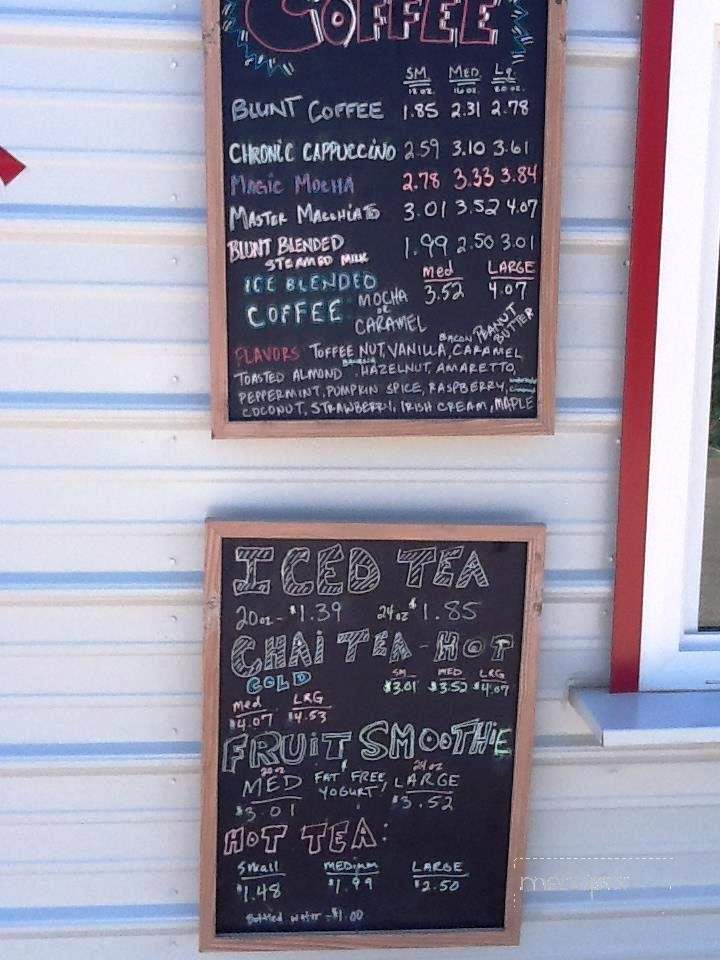 COFFEE
SM MED Lg.
12 oz. 16 oz. 20 oz.
BLUNT COFFEE 1.85 2.31 2.78
CHRONIC CAPPUCCINO 2.59 3.10 3.61
MAGIC MOCHA 2.78 3.33 3.84
MASTER MACCHIATO 3.01 3.52 4.07
BLUNT BLENDED 1.99 2.50 3.01
STEAMED MILK
ICE BLENDED med LARGE
COFFEE MOCHA 3.52 4.07
or
CARAMEL
BACON PEANUT BUTTER
FLAVORS TOFFEE NUT, VANILLA, CARAMEL
TOASTED ALMOND, HAZELNUT, AMARETTO,
PEPPERMINT, PUMPKIN SPICE, RASPBERRY,
COCONUT, STRAWBERRY, IRISH CREAM, MAPLE
ICED TEA
20oz - $1.39 24oz $1.85
CHAI TEA - HOT
COLD SM MED LRG
$3.01 $3.52 $4.07
med LRG
$4.07 $4.53
FRUIT SMOOTHIE
20oz 24oz
MED FAT FREE LARGE
YOGURT!
$3.01 $3.52
HOT TEA:
Small MEDIUM LARGE
$1.48 $1.99 $2.50
Bottled water - $1.00